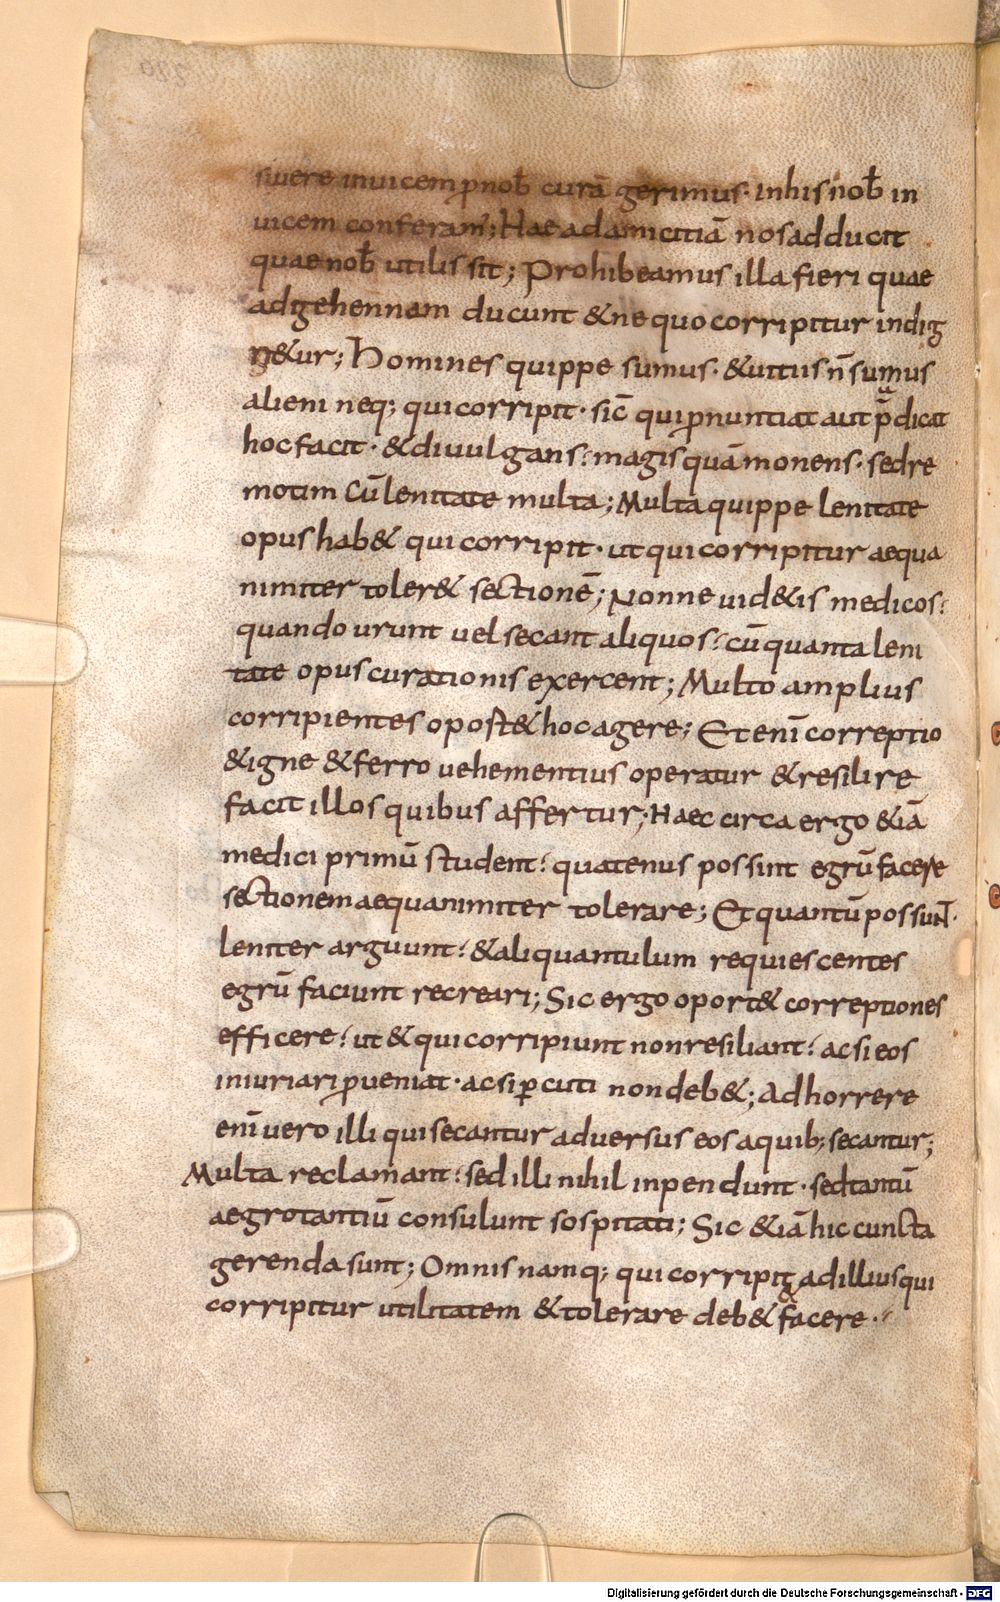 siuere inuicem ꝓnob̅ curā gerimus· inhis nob̅ in
uicem conferam̅; Hae ad amicitiā nos adducit
quae nob̅ utilis sit; Prohibeamus illa fieri quae
ad gehennam ducunt & ne quo corripitur indig
n&ur; Homines quippe sumus· & uitiis n̅ sumus
alieni neq; qui corripit· sic̅ qui ꝓnuntiat aut p̅dicat
hoc facit· & diuulgans: magis quā monens· sed re
motim cū lenitate multa; Multa quippe lenitate
opus hab& qui corripit· ut qui corripitur aequa
nimiter toler& sectionē; Nonne uid&is medicos:
quando urunt uel secant aliquos: cū quanta leni
tate opus curationis exercent; Multo amplius
corripientes oport& hoc agere; Et eni̅ correptio
& igne & ferro uehementius operatur & resilire
facit illos quibus affertur; Haec circa ergo &iā
medici primū student: quatenus possint egrū facere
sectionem aequanimiter tolerare; Et quantū possunt·
leniter arguunt: & aliquantulum requiescentes
egrū faciunt recreari; Sic ergo oport& correptiones
efficere: ut & qui corripiunt non resiliant: ac si eos
iniuriari ꝓueniat· ac si ꝑcuti non deb&; Adhorrere
eni̅ uero illi qui secantur aduersus eos a quib; secantur;
Multa reclamant: sed illi nihil inpendunt· sed tantū
aegrotantiū consulunt sospitati; Sic &iā hic cuncta
gerenda sunt; Omnis namq; qui corripit ad illius qui
corripitur utilitatem & tolerare deb& & facere·
Digitalisierung gefördert durch die Deutsche Forschungsgemeinschaft - DFG